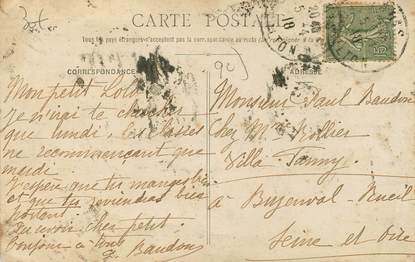 CARTE POSTALE
Tous les pays étrangers n'acceptent pas la correspondance au recto
CORRESPONDANCE
ADRESSE
Mon petit Lolo
Je n'irai te chercher
que lundi, les classes
ne recommençant que
mardi.
J'espère que tu manges bien
et que tu reviendras bien
portant.
Au revoir cher petit.
Bonjour à tous
Baudon
Monsieur Paul Baudon
Chez Mr
Villa Fanny
à Buzenval-Rueil
Seine et Oise